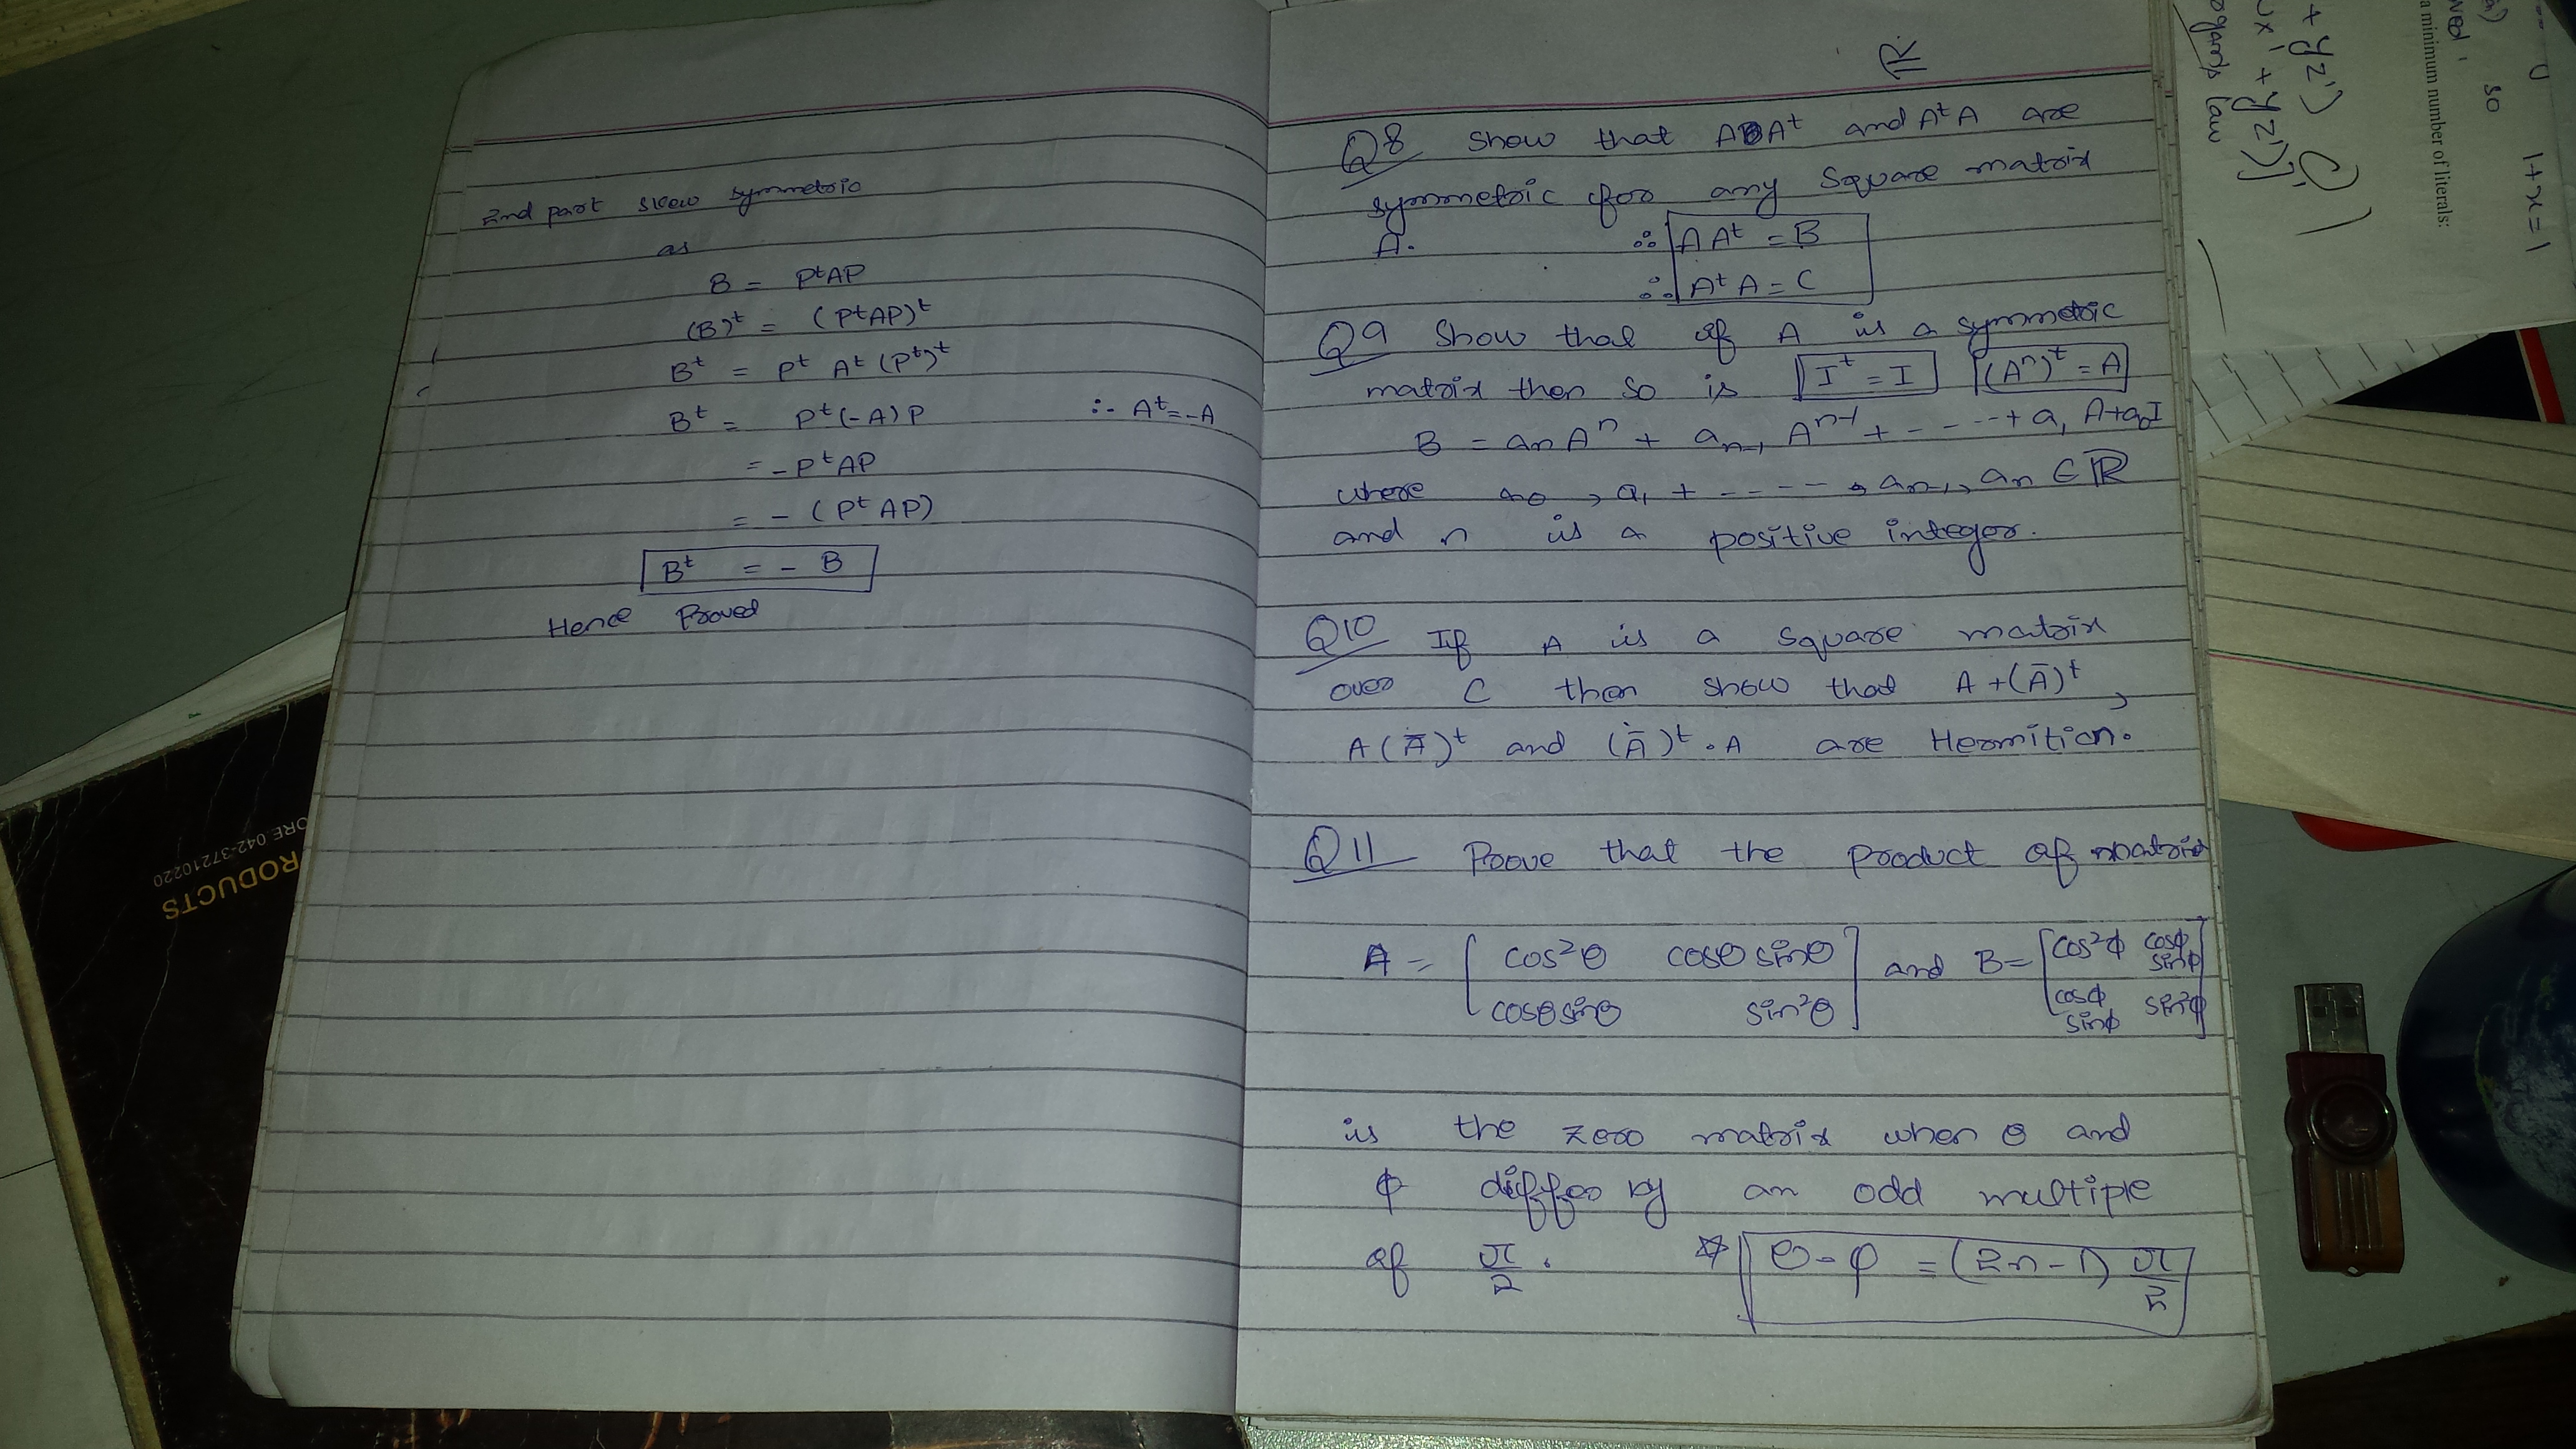 2nd part skew symmetric
as
B = PᵗAP
(B)ᵗ = (PᵗAP)ᵗ
Bᵗ = Pᵗ Aᵗ (Pᵗ)ᵗ
Bᵗ = Pᵗ(-A)P ∴ Aᵗ=-A
= -PᵗAP
= - (PᵗAP)
Bᵗ = - B
Hence Proved
ℝ
Q8 Show that AAᵗ and AᵗA are
symmetric for any Square matrix
A. ∴ AAᵗ = B
∴ AᵗA = C
Q9 Show that if A is a symmetric
matrix then so is Iᵗ = I (Aⁿ)ᵗ = A
B = anAⁿ + an-1 Aⁿ⁻¹ + ---- + a1 A+a0I
where a0, a1 + ----, an-1, an ∈ ℝ
and n is a positive integer.
Q10 If A is a square matrix
over C then show that A+(Ā)ᵗ,
A(Ā)ᵗ and (Ā)ᵗ.A are Hermition.
Q11 Prove that the product of matrix
A = [cos²θ cosθ sinθ] and B= [cos²ϕ cosϕ sinϕ]
[cosθ sinθ sin²θ] [cosϕ sinϕ sin²ϕ]
is the zero matrix when θ and
ϕ differ by an odd multiple
of π/2. θ-φ = (2n-1) π/2
RODUCTS
ORE 042-37210220
1+x=1
so
a minimum number of literals: